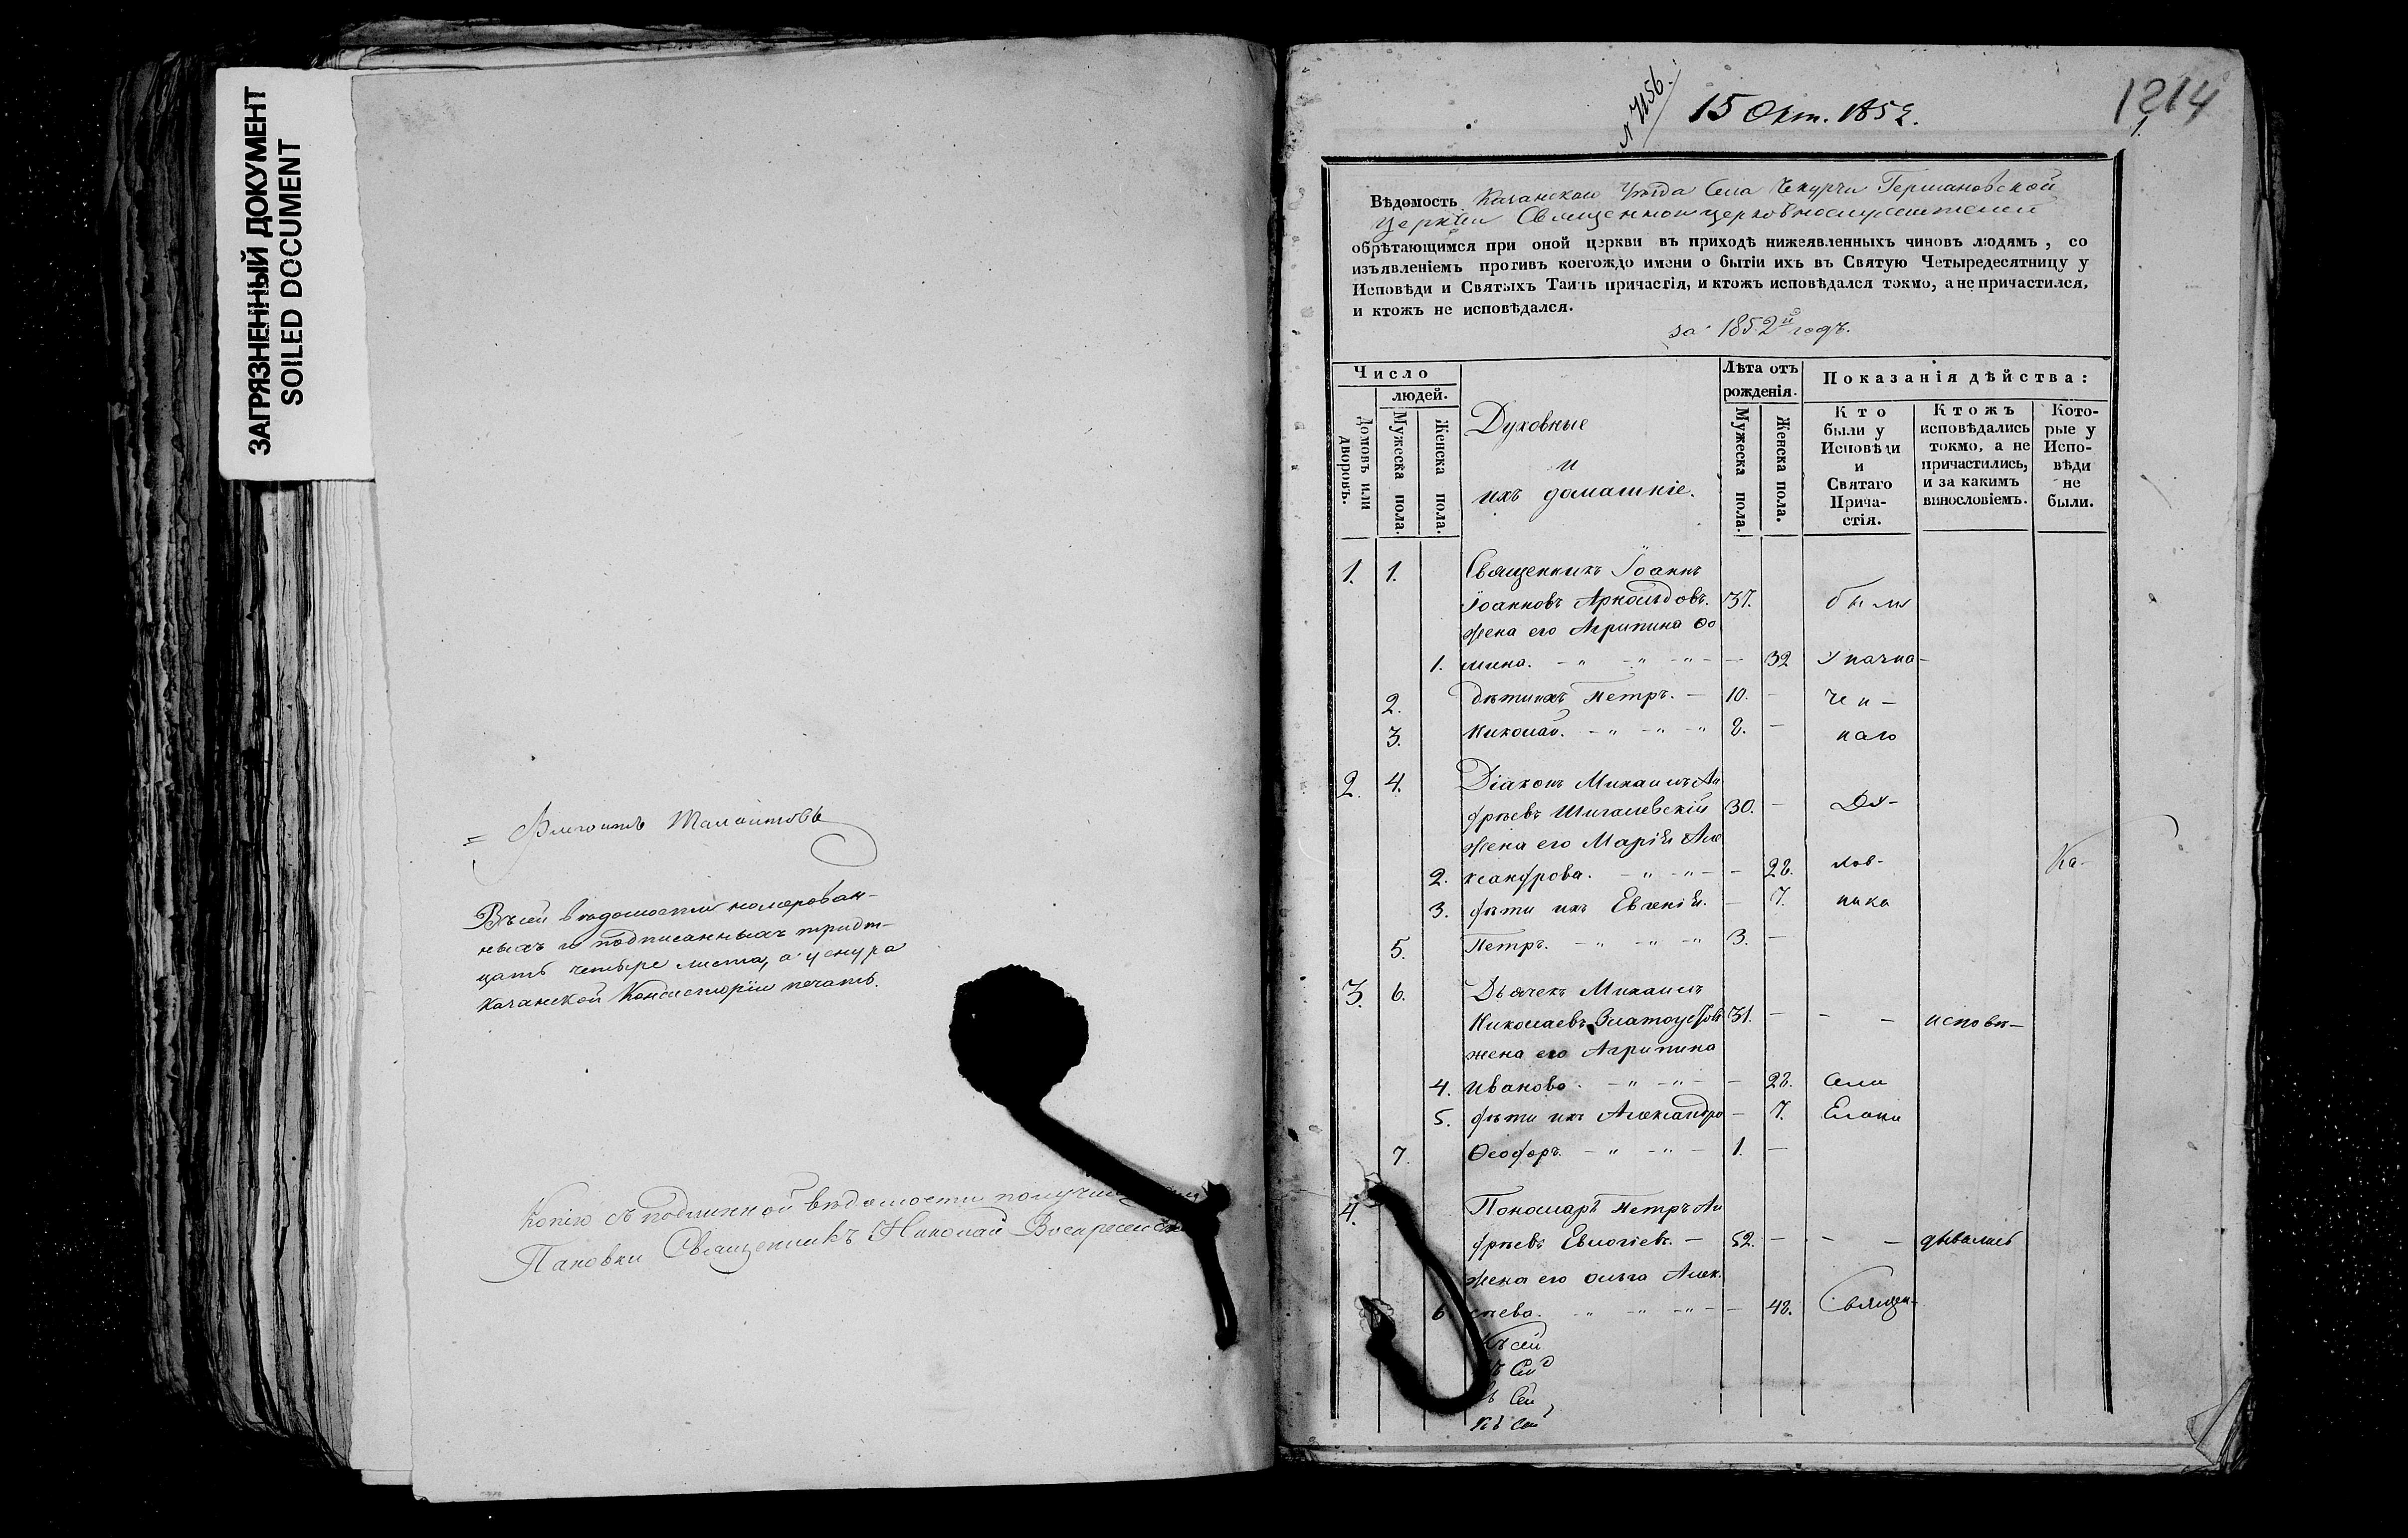 ЗАГРЯЗНЕННЫЙ ДОКУМЕНТ
SOILED DOCUMENT
Въ сей вѣдомости номерован-
ныхъ и подписанныхъ трид-
цать четыре листа, а у снура
Казанской Консисторіи печать.
Копію съ подлинной вѣдомости получилъ
Пановки Священникъ Николай Воскресенскій
15 Окт. 1852.
1214
Вѣдомость Казанскаго Уѣзда Села Чекурчи Германовской
Церкви Священноицерковнослужителей
обрѣтающимся при оной церкви въ приходѣ нижеявленныхъ чиновъ людямъ, со
изъявленіемъ противъ коегождо имени о бытіи ихъ въ Святую Четыредесятницу у
Исповѣди и Святыхъ Таинъ причастія, и ктожъ исповѣдался токмо, а не причастился,
и ктожъ не исповѣдался.
за 1852й годъ.
Число
людей.
Домовъ или дворовъ.
Мужеска пола.
Женска пола.
Духовные
и
ихъ домашніе.
Лѣта отъ
рожденія.
Мужеска пола.
Женска пола.
Показанія дѣйства:
Кто
были у
Исповѣди
и
Святаго
Прича-
стія.
Ктожъ
исповѣдались
токмо, а не
причастились,
и за какимъ
винословіемъ.
Кото-
рые у
Испо-
вѣди
не
были.
1. 1. Священникъ Іоаннъ
Іоанновъ Арнольдовъ. 37. были
жена его Агрипина Ѳо
1. мина. - " - " - " - - 32
2. дѣти ихъ Петръ. - 10. -
3. Николай. - " - " - " 8. - наго
2. 4. Діаконъ Михаилъ Ан
дреевъ Шигалевскій 30. - Ду-
жена его Марія Але
2. ксандрова. - " - " - - 28. хов- Ка-
3. дѣти ихъ Евгенія. - 7. ника
5. Петръ. - " - " - " 3. -
3. 6. Дьячекъ Михаилъ
Николаевъ Златоустовъ 31. - - - исповѣ-
жена его Агрипина
4. Иванова. - " - " - - 28. Села
5. дѣти ихъ Александра - 7.
7. Ѳеодоръ. - " - " - 1. -
4. Пономарь Петръ Ан
дреевъ Евлогіевъ. - 52. - - - дывались
жена его Ольга Алек.
6 сѣева. " - " - " - - 48. Священ-
Къ сей